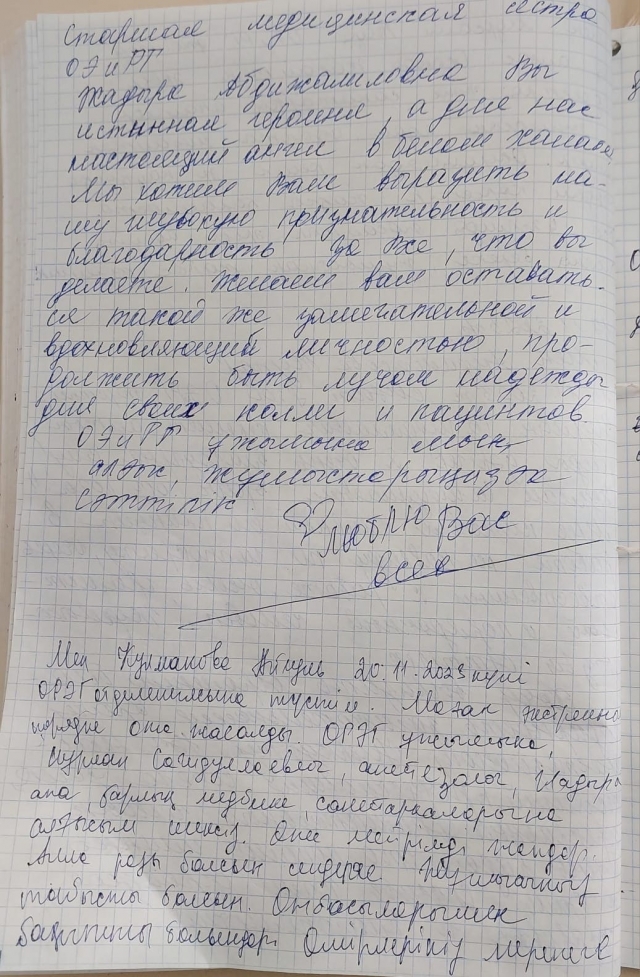 Старшая медицинская сестра
ОЭиРТ
Жадыра Абдижалиловна Вы
истинная героиня, а для нас
настоящий ангел в белом халате
Мы хотим Вам выразить на-
шу глубокую признательность и
благодарность за все, что вы
делаете. Желаем вам оставать-
ся такой же замечательной и
вдохновляющий личностью, про-
должить быть лучом надежды
для своих колли и пациентов
ОЭиРТ ұжымына мың
алғыс, жұмыстарыңызға
сәттілік.
люблю Вас
всех
Мен Кулманова Айгуль 20.11.2023 күні
ОРЭТ отделениясына түстім. Маған экстренно
порядке ота жасалды. ОРЭТ ұжымына,
Нурлан Сагидуллаевич, анестезолог, Жадыра
апа, барлық медбике, санитаркаларына
алғысым шексіз. Өте мейрімді жандар.
Алла разы болсын сидерге. Жұмыстарыңыз
табысты болсын. Отбасыларымен
бақытты болыңдар. Өмірлеріңіз мерекеге